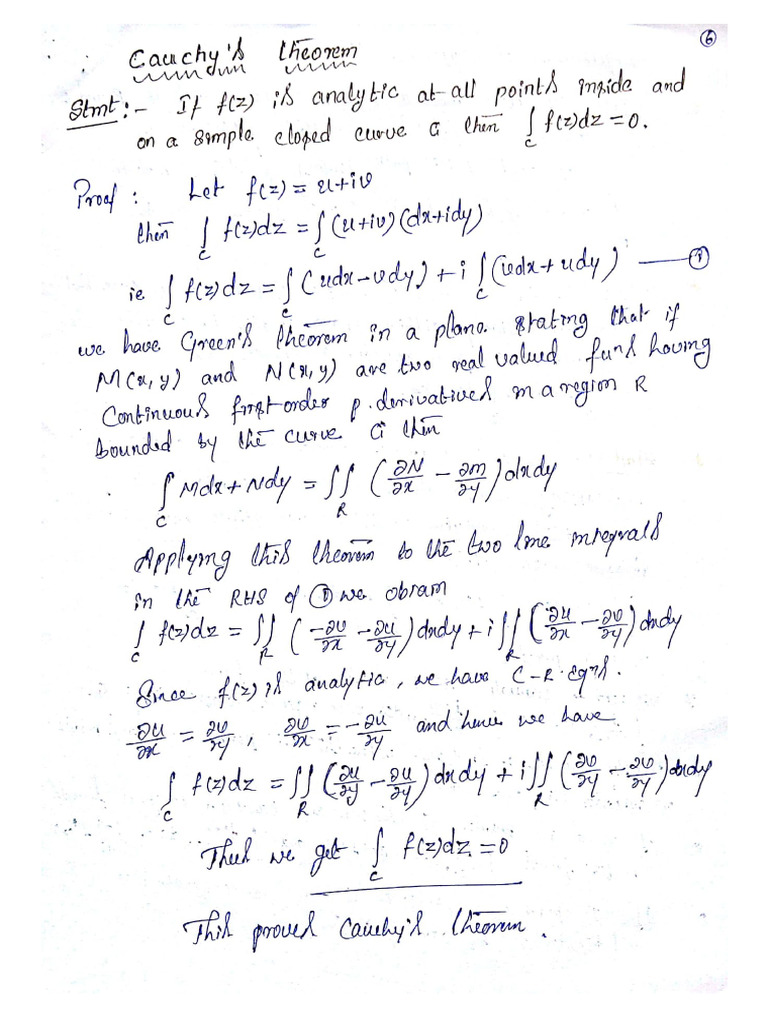 ⑥
Cauchy's theorem
Stmt:- If f(z) is analytic at all points inside and
on a simple closed curve C then ∫_C f(z)dz = 0.
Proof : Let f(z) = u+iv
then ∫_C f(z)dz = ∫_C (u+iv)(dx+idy)
ie ∫_C f(z)dz = ∫_C (udx-vdy) + i ∫_C (vdx+udy) —— ①
we have Green's theorem in a plane stating that if
M(x,y) and N(x,y) are two real valued funs having
Continuous first order p.derivatives in a region R
bounded by the curve C then
∫_C Mdx+Ndy = ∬_R (∂N/∂x - ∂m/∂y) dxdy
Applying this theorem to the two line integrals
in the RHS of ① we obtain
∫_C f(z)dz = ∬_R (-∂v/∂x - ∂u/∂y) dxdy + i ∬_R (∂u/∂x - ∂v/∂y) dxdy
Since f(z) is analytic, we have C-R.Eqns.
∂u/∂x = ∂v/∂y, ∂v/∂x = -∂u/∂y and hence we have
∫_C f(z)dz = ∬_R (∂u/∂y - ∂u/∂y) dxdy + i ∬_R (∂v/∂y - ∂v/∂y) dxdy
Thus we get ∫_C f(z)dz = 0
This proves Cauchy's theorem.